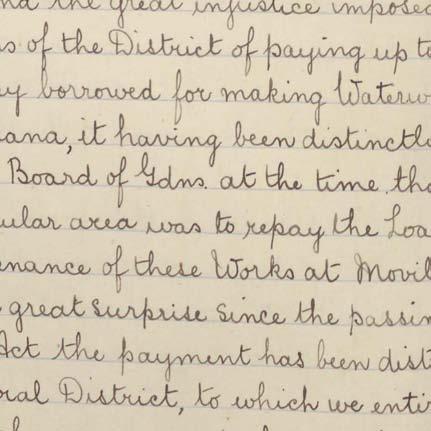 the great injustice imposed
of the District of paying up to
borrowed for making Waterw
ana, it having been distinctl
Board of Gdns. at the time tha
ular area was to repay the Loa
enance of these Works at Movil
great surprise since the passin
Act the payment has been dist
ral District, to which we enti